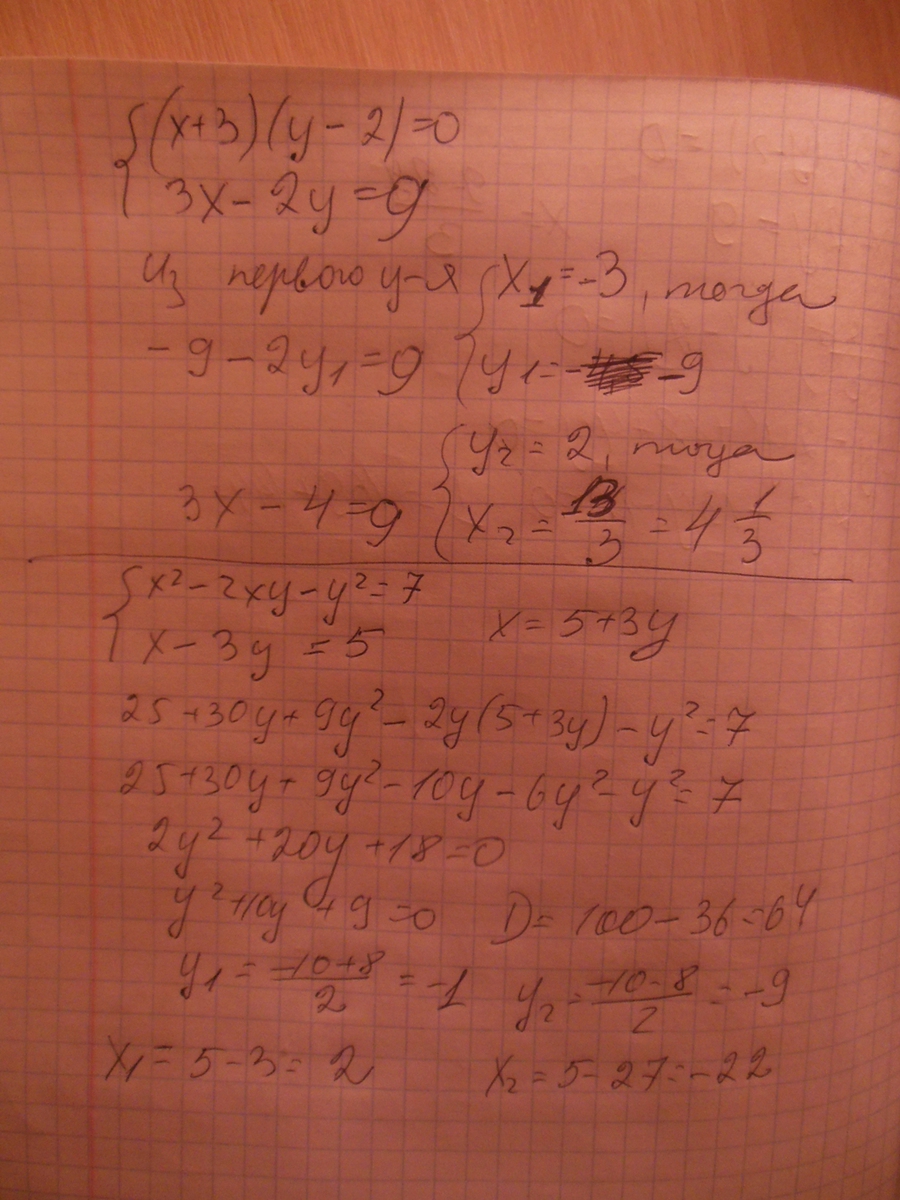 {(x+3)(y-2)=0
3x-2y=9
Из первого у-я {x₁=-3, тогда
-9-2y₁=9 y₁=-9
{y₂=2, тогда
3x-4=9 x₂=13/3=4 1/3
{x²-2xy-y²=7
x-3y=5 x=5+3y
25+30y+9y²-2y(5+3y)-y²=7
25+30y+9y²-10y-6y²-y²=7
2y²+20y+18=0
y²+10y+9=0 D=100-36=64
y₁=-10+8/2=-1 y₂=-10-8/2=-9
x₁=5-3=2 x₂=5-27=-22